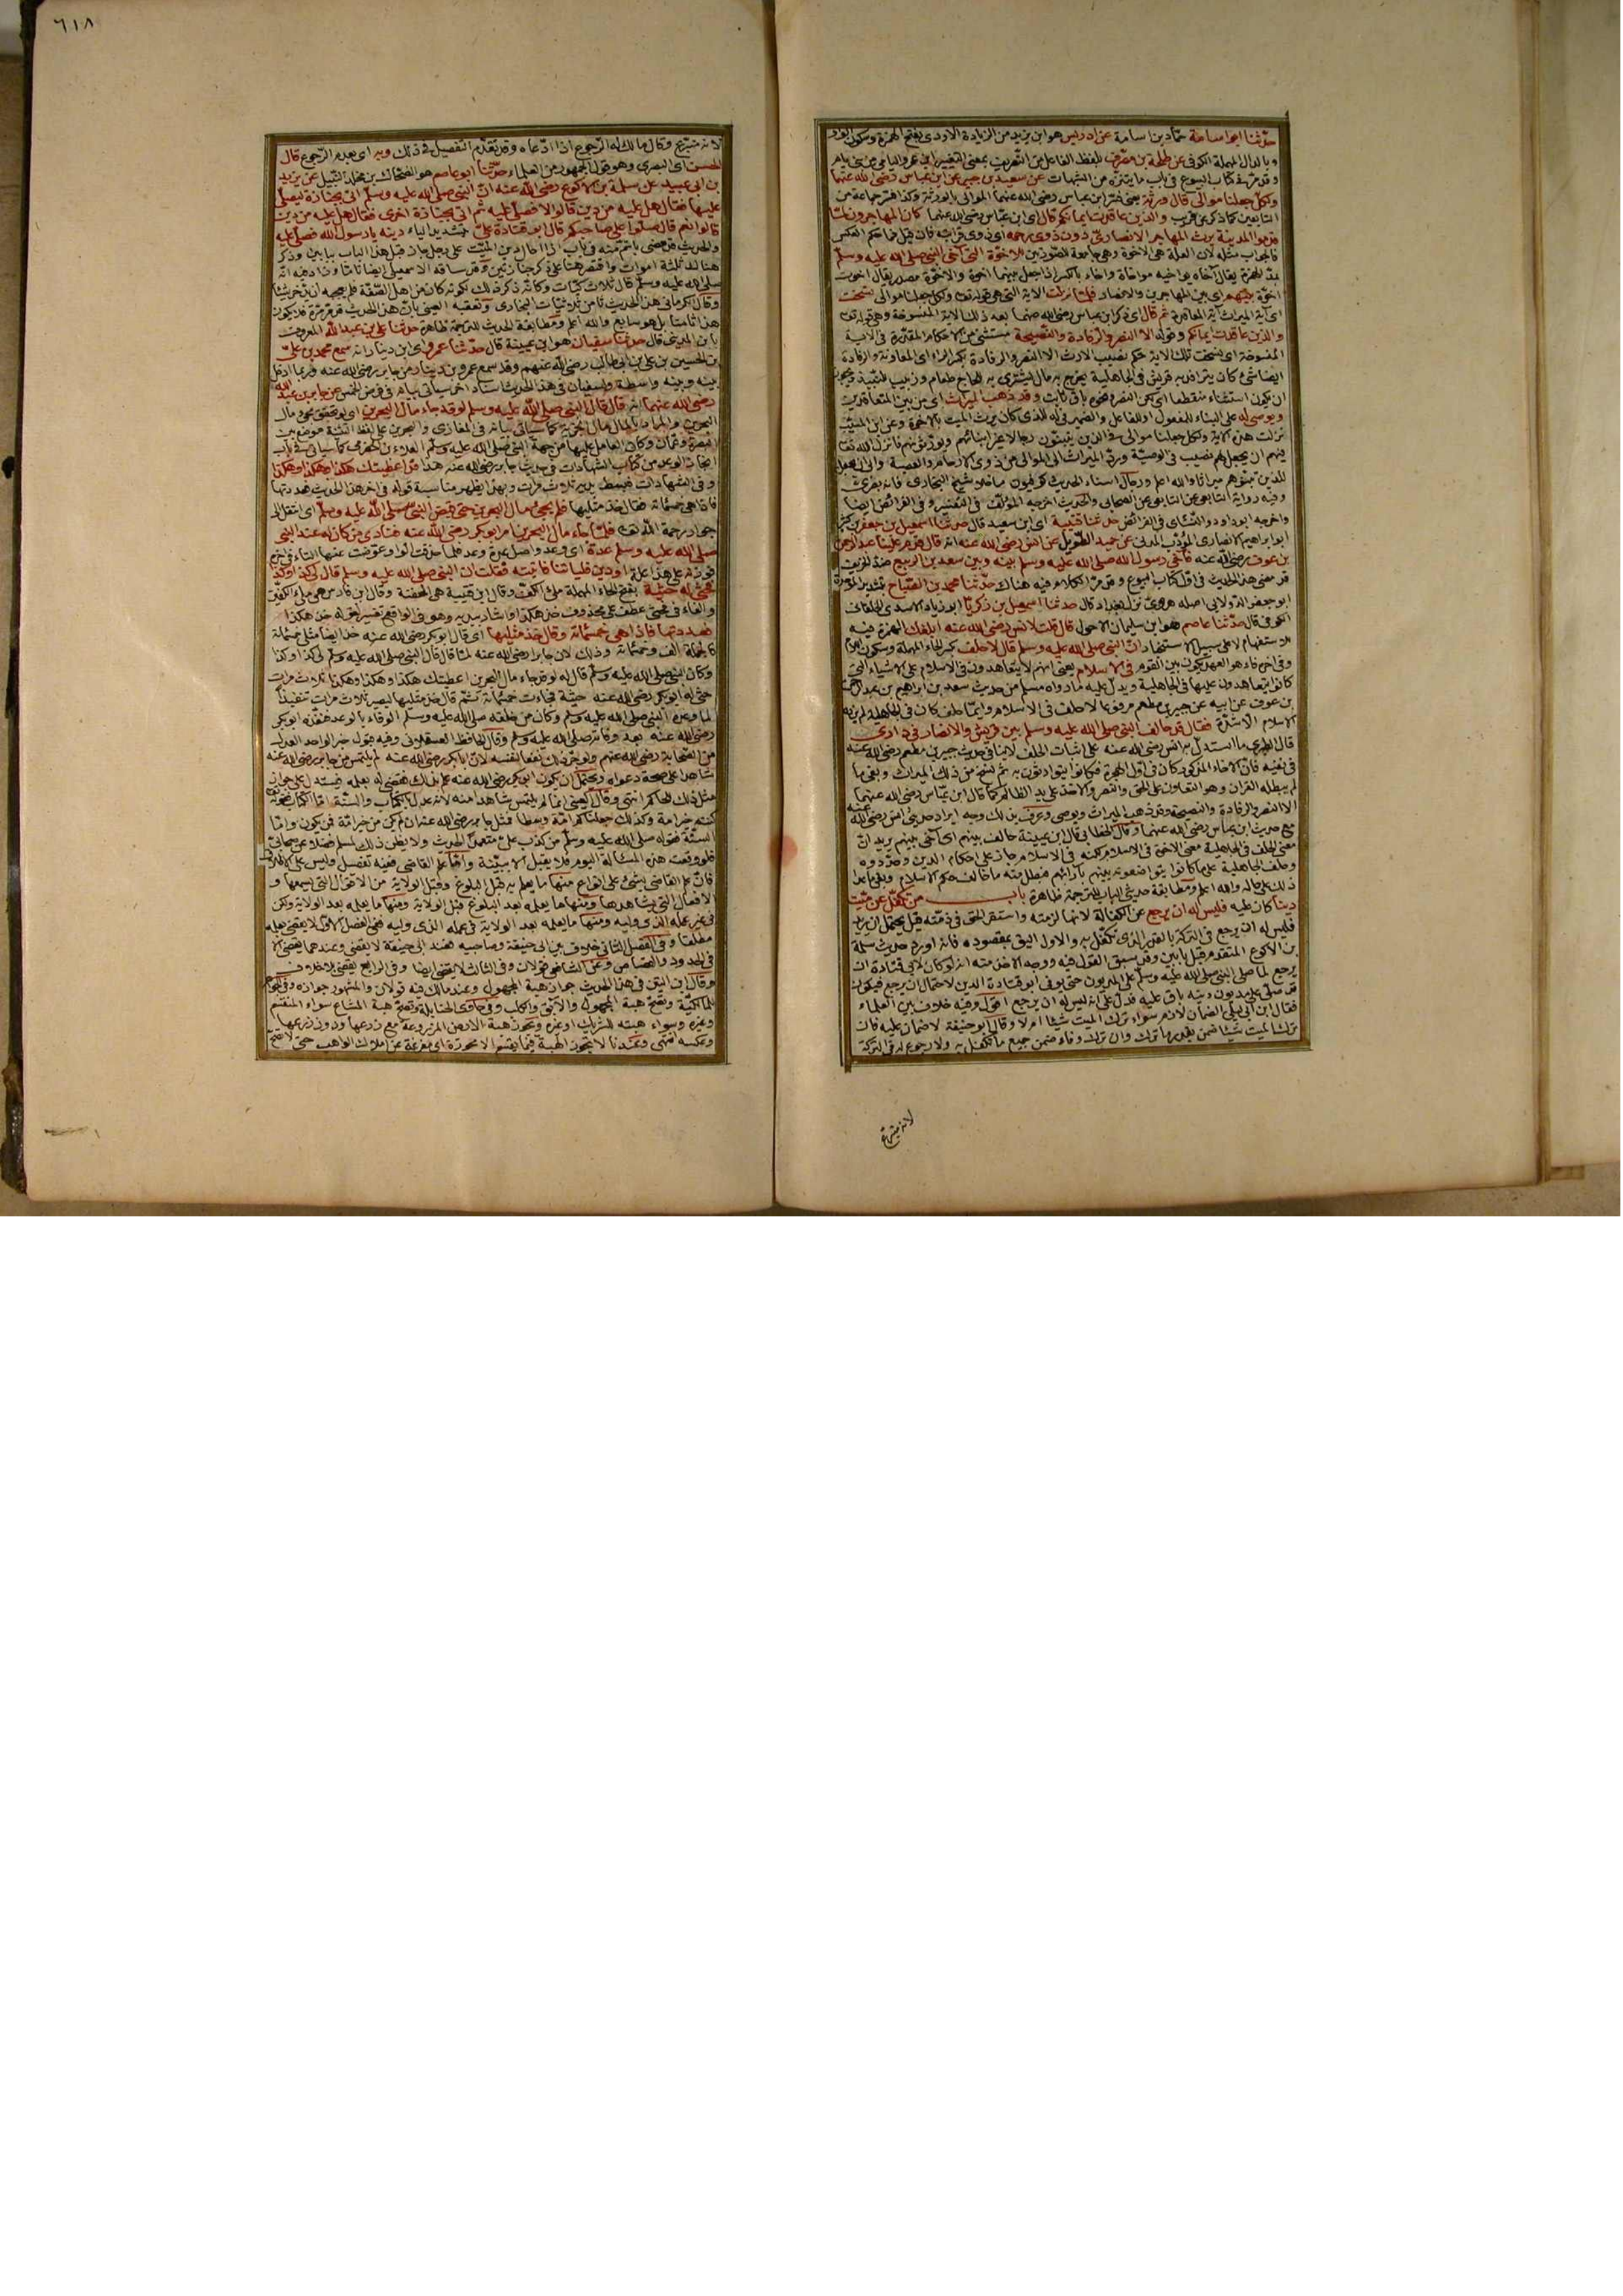 حدّثنا ابو اسامة حمّاد بن اسامة عن ادريس هو ابن يزيد من الزيادة الاودى بفتح الهمزة وسكون الواو
وبالدال المهملة الكوفى عن طلحة بن مصرّف بلفظ الفاعل من التصريف بمعنى التغيير ابن عمرو اليامى من بنى يام
وقد مرّ فى كتاب البيوع فى باب ما يتنزّه من الشبهات عن سعيد بن جبير عن ابن عباس رضى الله عنهما
ولكلّ جعلنا موالى قال ورثة يعنى فسّر ابن عباس رضى الله عنهما الموالى بالورثة وكذا فسّر جماعة من
التابعين كما ذكر عن قريب والذين عاقدت ايمانكم قال اى ابن عبّاس رضى الله عنهما كان المهاجرون لمّا
قدموا المدينة يرث المهاجر الانصارىّ دون ذوى رحمه اى ذوى قرابته
للاخوّة التى آخى النبى صلى الله عليه وسلّم
اخوّة بينهم اى بين المهاجرين والانصار فلمّا نزلت الاية التى هى قوله تعالى ولكل جعلنا موالى نسخت
اى آية الميراث آية المعاقدة ثم قال اى ذكر ابن عباس رضى الله عنهما بعد ذلك الاية المنسوخة وهى قوله تعالى
والذين عاقدت ايمانكم وقوله الا النصر والرفادة والنصيحة مستثنى من الاحكام المقدّرة فى الاية
المنسوخة اى نسخت تلك الاية حكم نصيب الارث الا النصر والرفادة بكسر الراء اى المعاونة والرفادة
ايضا شئ كان يترافد به قريش فى الجاهلية يخرج به مال يشترى به للحاج طعام وزبيب للنبيذ ويجوز
ان يكون استثناء منقطعا اى لكن النصر ونحوه باق ثابت وقد ذهب الميراث اى من بين المتعاقدين
ويوصى له على البناء للمفعول او للفاعل والضمير فى له للذى كان يرث الميت بالاخوة وعن ابن المسيّب
نزلت هذه الاية ولكل جعلنا موالى فى الذين يتبنّون رجالا غير ابنائهم ويورّثونهم فانزل الله تعالى
فيهم ان يجعل لهم نصيب فى الوصيّة وردّ الميراث الى الموالى من ذوى الارحام والعصبة
وفيه رواية التابعى عن التابعى عن الصحابى والحديث اخرجه المؤلّف فى التفسير وفى الفرائض ايضا
واخرجه ابو داود والنسائى فى الفرائض حدثنا قتيبة اى ابن سعيد قال حدّثنا اسمعيل بن جعفر بن كثير
ابو ابراهيم الانصارى المؤدّب المدنى عن حميد الطّويل عن انس رضى الله عنه انه قال قدم علينا عبد الرحمن
بن عوف رضى الله عنه فآخى رسول الله صلى الله عليه وسلم بينه وبين سعد بن الربيع
قد مضى هذا الحديث فى اوّل كتاب البيوع وقد مرّ الكلام فيه هناك حدّثنا محمد بن الصّباح بتشديد الموحدة
ابو جعفر الدّولابى اصله هروىّ نزل بغداد قال حدثنا اسمعيل بن زكريّا ابو زياد الاسدى الخلقانى
الكوفى قال حدّثنا عاصم هو ابن سليمان الاحول قال قلت لانس رضى الله عنه ابلغك الهمزة فيه
للاستفهام لا على سبيل الاستخبار انّ النبى صلى الله عليه وسلم قال لا حلف بكسر الحاء المهملة وسكون اللام
وفى آخره فاء هو العهد يكون بين القوم فى الاسلام يعنى انهم لا يتعاهدون فى الاسلام على الاشياء التى
كانوا يتعاهدون عليها فى الجاهلية ويدلّ عليه ما رواه مسلم من حديث سعد بن ابراهيم بن عبد الرحمن
بن عوف عن ابيه عن جبير بن مطعم مرفوعا لا حلف فى الاسلام وايّما حلف كان فى الجاهلية لم يزده
الاسلام الا شدّة فقال قد حالف النبى صلى الله عليه وسلم بين قريش والانصار فى دارى
قال الطبرى ما استدل به انس رضى الله عنه على اثبات الحلف لا ينافى حديث جبير بن مطعم رضى الله عنه
فى نفيه فانّ الاخاء المذكور كان فى اوّل الهجرة فكانوا يتوارثون به ثم نسخ من ذلك الميراث وبقى ما
لم يبطله القران وهو التعاون على الحق والنصر والاخذ على يد الظالم كما قال ابن عبّاس رضى الله عنهما
الا النصر والرفادة والنصيحة وقد ذهب الميراث ويوصى وعرف بذلك وجه ايراد حديث انس رضى الله عنه
مع حديث ابن عباس رضى الله عنهما وقال الخطابى قال ابن عيينة حالف بينهم اى آخى بينهم يريد انّ
معنى الحلف فى الجاهلية معنى الاخوّة فى الاسلام لكنه فى الاسلام جار على احكام الدين وحدوده
وحلف الجاهلية على ما كانوا يتواضعونه بينهم بآرائهم فبطل منه ما خالف حكم الاسلام وبقى ما عدا
ذلك على حاله والله اعلم ومطابقة حديثى الباب للترجمة ظاهرة باب من تكفّل عن ميّت
دينا كان عليه فليس له ان يرجع عن الكفالة لانها لزمته واستقر الحق فى ذمّته قيل يحتمل ان يريد
فليس له ان يرجع فى التركة بالقدر الذى تكفّل به والاول اليق بمقصوده فانه اورد حديث سلمة
بن الاكوع المتقدم قبل بابين وقد سبق القول فيه ووجه الاخذ منه انه لو كان لابى قتادة ان
يرجع لما صلى النبى صلى الله عليه وسلّم على المديون حتى يوفى ابو قتادة الدين لاحتمال ان يرجع فيكون
قد صلّى على مديون دينه باق عليه فدلّ على انه ليس له ان يرجع اقول وفيه خلاف بين العلماء
فقال ابن ابى ليلى الضمان لازم سواء ترك الميت شيئا ام لا وقال ابو حنيفة لا ضمان عليه فان
ترك الميت شيئا ضمن بقدر ما ترك وان ترك وفاء ضمن جميع ما تكفل به ولا رجوع له فى التركة
لانه متبرّع
٦١٨
لانه متبرّع وقال مالك له الرّجوع اذا ادّعاه وقد تقدّم التفصيل فى ذلك وبه اى بعدم الرّجوع قال
الحسن اى البصرى وهو قول الجمهور من العلماء حدّثنا ابو عاصم هو الضحاك بن مخلد النّبيل عن يزيد
بن ابى عبيد عن سلمة بن الاكوع رضى الله عنه انّ النبى صلى الله عليه وسلّم اتى بجنازة ليصلّى
عليها فقال هل عليه من دين قالوا لا فصلّى عليه ثم اتى بجنازة اخرى فقال هل عليه من دين
قالوا نعم قال صلّوا على صاحبكم قال ابو قتادة علىّ بتشديد الياء دينه يا رسول الله فصلّى عليه
والحديث قد مضى باتمّ منه فى باب اذا احال دين الميّت على رجل جاز قبل هذا الباب ببابين وذكر
هناك ثلثة اموات واقتصر هنا على ذكر جنازتين
صلى الله عليه وسلم قال ثلاث كيّات وكانّه ذكر ذلك لكونه كان من اهل الصّفّة
وقال الكرمانى هذا الحديث ثامن ثلاثيّات البخارى وتعقبه العينى بانّ هذا الحديث قد مرّ مرّة فلا يكون
هذا ثامنا بل هو سابع والله اعلم ومطابقة الحديث للترجمة ظاهرة حدثنا على بن عبد الله المعروف
بابن المدينى قال حدثنا سفيان هو ابن عيينة قال حدّثنا عمرو اى ابن دينار انه سمع محمد بن علىّ
بن الحسين بن على بن ابى طالب رضى الله عنهم وقد سمع عمرو بن دينار من جابر رضى الله عنه وربما ادخل
بينه وبينه واسطة ولسفيان فى هذا الحديث اسناد اخر سيأتى بيانه فى فرض الخمس عن جابر بن عبد الله
رضى الله عنهما انه قال قال النبى صلى الله عليه وسلم لو قد جاء مال البحرين اى لو تحقق مجئ مال
البحرين والمراد بالمال مال الجزية كما سيأتى بيانه فى المغازى والبحرين على لفظ التثنية موضع بين
البصرة وعمان وكان العامل عليها من جهة النبى صلى الله عليه وسلّم العلاء بن الحضرمى كما سيأتى فى باب
انجاز الوعد من كتاب الشهادات فى حديث جابر رضى الله عنه هذا قد اعطيتك هكذا وهكذا وهكذا
وفى الشهادات فبسط يديه ثلاث مرات وبهذا يظهر مناسبة قوله فى اخر هذا الحديث فعددتها
فاذا هى خمسمائة فقال خذ مثليها فلم يجئ مال البحرين حتى قبض النبى صلى الله عليه وسلّم اى انتقل الى
جوار رحمة الله تعالى فلمّا جاء مال البحرين امر ابو بكر رضى الله عنه فنادى من كان له عند النبى
صلى الله عليه وسلم عدة اى وعد واصل عدة وعد فلما حذفت الواو عوّضت عنها التاء فى آخره
فوزنه على هذا علة او دين فليأتنا فاتيته فقلت ان النبى صلى الله عليه وسلم قال لى كذا وكذا
فحثى لى حثية بفتح الحاء المهملة ملئ الكفّ وقال ابن قتيبة هى الحفنة وقال ابن فارس هى ملئ الكفّين
والفاء فى فحثى عطف على محذوف
فعددتها فاذا هى خمسمائة وقال خذ مثليها اى قال ابو بكر رضى الله عنه خذ ايضا مثلى خمسمائة
فالجملة الف وخمسمائة وذلك لان جابرا رضى الله عنه لمّا قال قال النبى صلى الله عليه وسلّم لى كذا وكذا
وكان النبى صلى الله عليه وسلّم قال له لو قد جاء مال البحرين اعطيتك هكذا وهكذا وهكذا ثلاث مرات
حثى له ابو بكر رضى الله عنه حثية فجاءت خمسمائة ثم قال خذ مثليها ليصير ثلاث مرات تنفيذا
لما وعده النبى صلى الله عليه وسلم وكان من خلقه صلى الله عليه وسلّم الوفاء بالوعد فنفّذه ابو بكر
رضى الله عنه بعد وفاته صلى الله عليه وسلّم وقال الحافظ العسقلانى وفيه قبول خبر الواحد العدل
من الصّحابة رضى الله عنهم ولو جرّ ذلك نفعا لنفسه لانّ ابا بكر رضى الله عنه لم يلتمس من جابر رضى الله عنه
شاهدا على صحة دعواه ويحتمل ان يكون ابو بكر رضى الله عنه علم بذلك فقضى له بعلمه فيستدل على جواز
مثل ذلك للحاكم انتهى وقال العينى انما لم يلتمس شاهدا منه لانه عدل بالكتاب والسنّة امّا الكتاب فقوله تعالى
كنتم خير امة وكذلك جعلناكم امّة وسطا فمثل جابر رضى الله عنه ان لم يكن من خير امّة فمن يكون وامّا
السنّة فقوله صلى الله عليه وسلّم من كذب علىّ متعمدا الحديث ولا يظن ذلك لمسلم فضلا عن صحابىّ
فلو وقعت هذه المسألة اليوم فلا يقبل الا ببيّنة وامّا علم القاضى ففيه تفصيل وليس على الاطلاق
فانّ علم القاضى بشئ على انواع منها ما يعلم به قبل البلوغ وقبل الولاية من الاقوال التى يسمعها و
الافعال التى يشاهدها ومنها ما يعلمه بعد البلوغ قبل الولاية ومنها ما يعلمه بعد الولاية ولكن
فى غير عمله الذى وليه ومنها ما يعلمه بعد الولاية فى عمله الذى وليه ففى الفصل الاوّل لا يقضى بعلمه
مطلقا وفى الفصل الثانى خلاف بين ابى حنيفة وصاحبيه فعند ابى حنيفة لا يقضى وعندهما يقضى الا
فى الحدود والقصاص وعن الشافعى قولان وفى الثالث لا يقضى ايضا وفى الرابع يقضى بلا خلاف
وقال ابن التين فى هذا الحديث جواز هبة المجهول وعند مالك فيه قولان والمشهور جوازه
وتصحّ هبة المجهول والآبق والكلب وفى حاوى الحنابلة وتصحّ هبة المشاع سواء المنقسم
وغيره وسواء هبته للشريك او غيره وتجوز هبة الارض المزروعة مع زرعها ودون زرعها
وعكسه انتهى وعندنا لا تجوز الهبة فيما يقسم الا محوزة اى مفرغة عن املاك الواهب حتى لا تصحّ